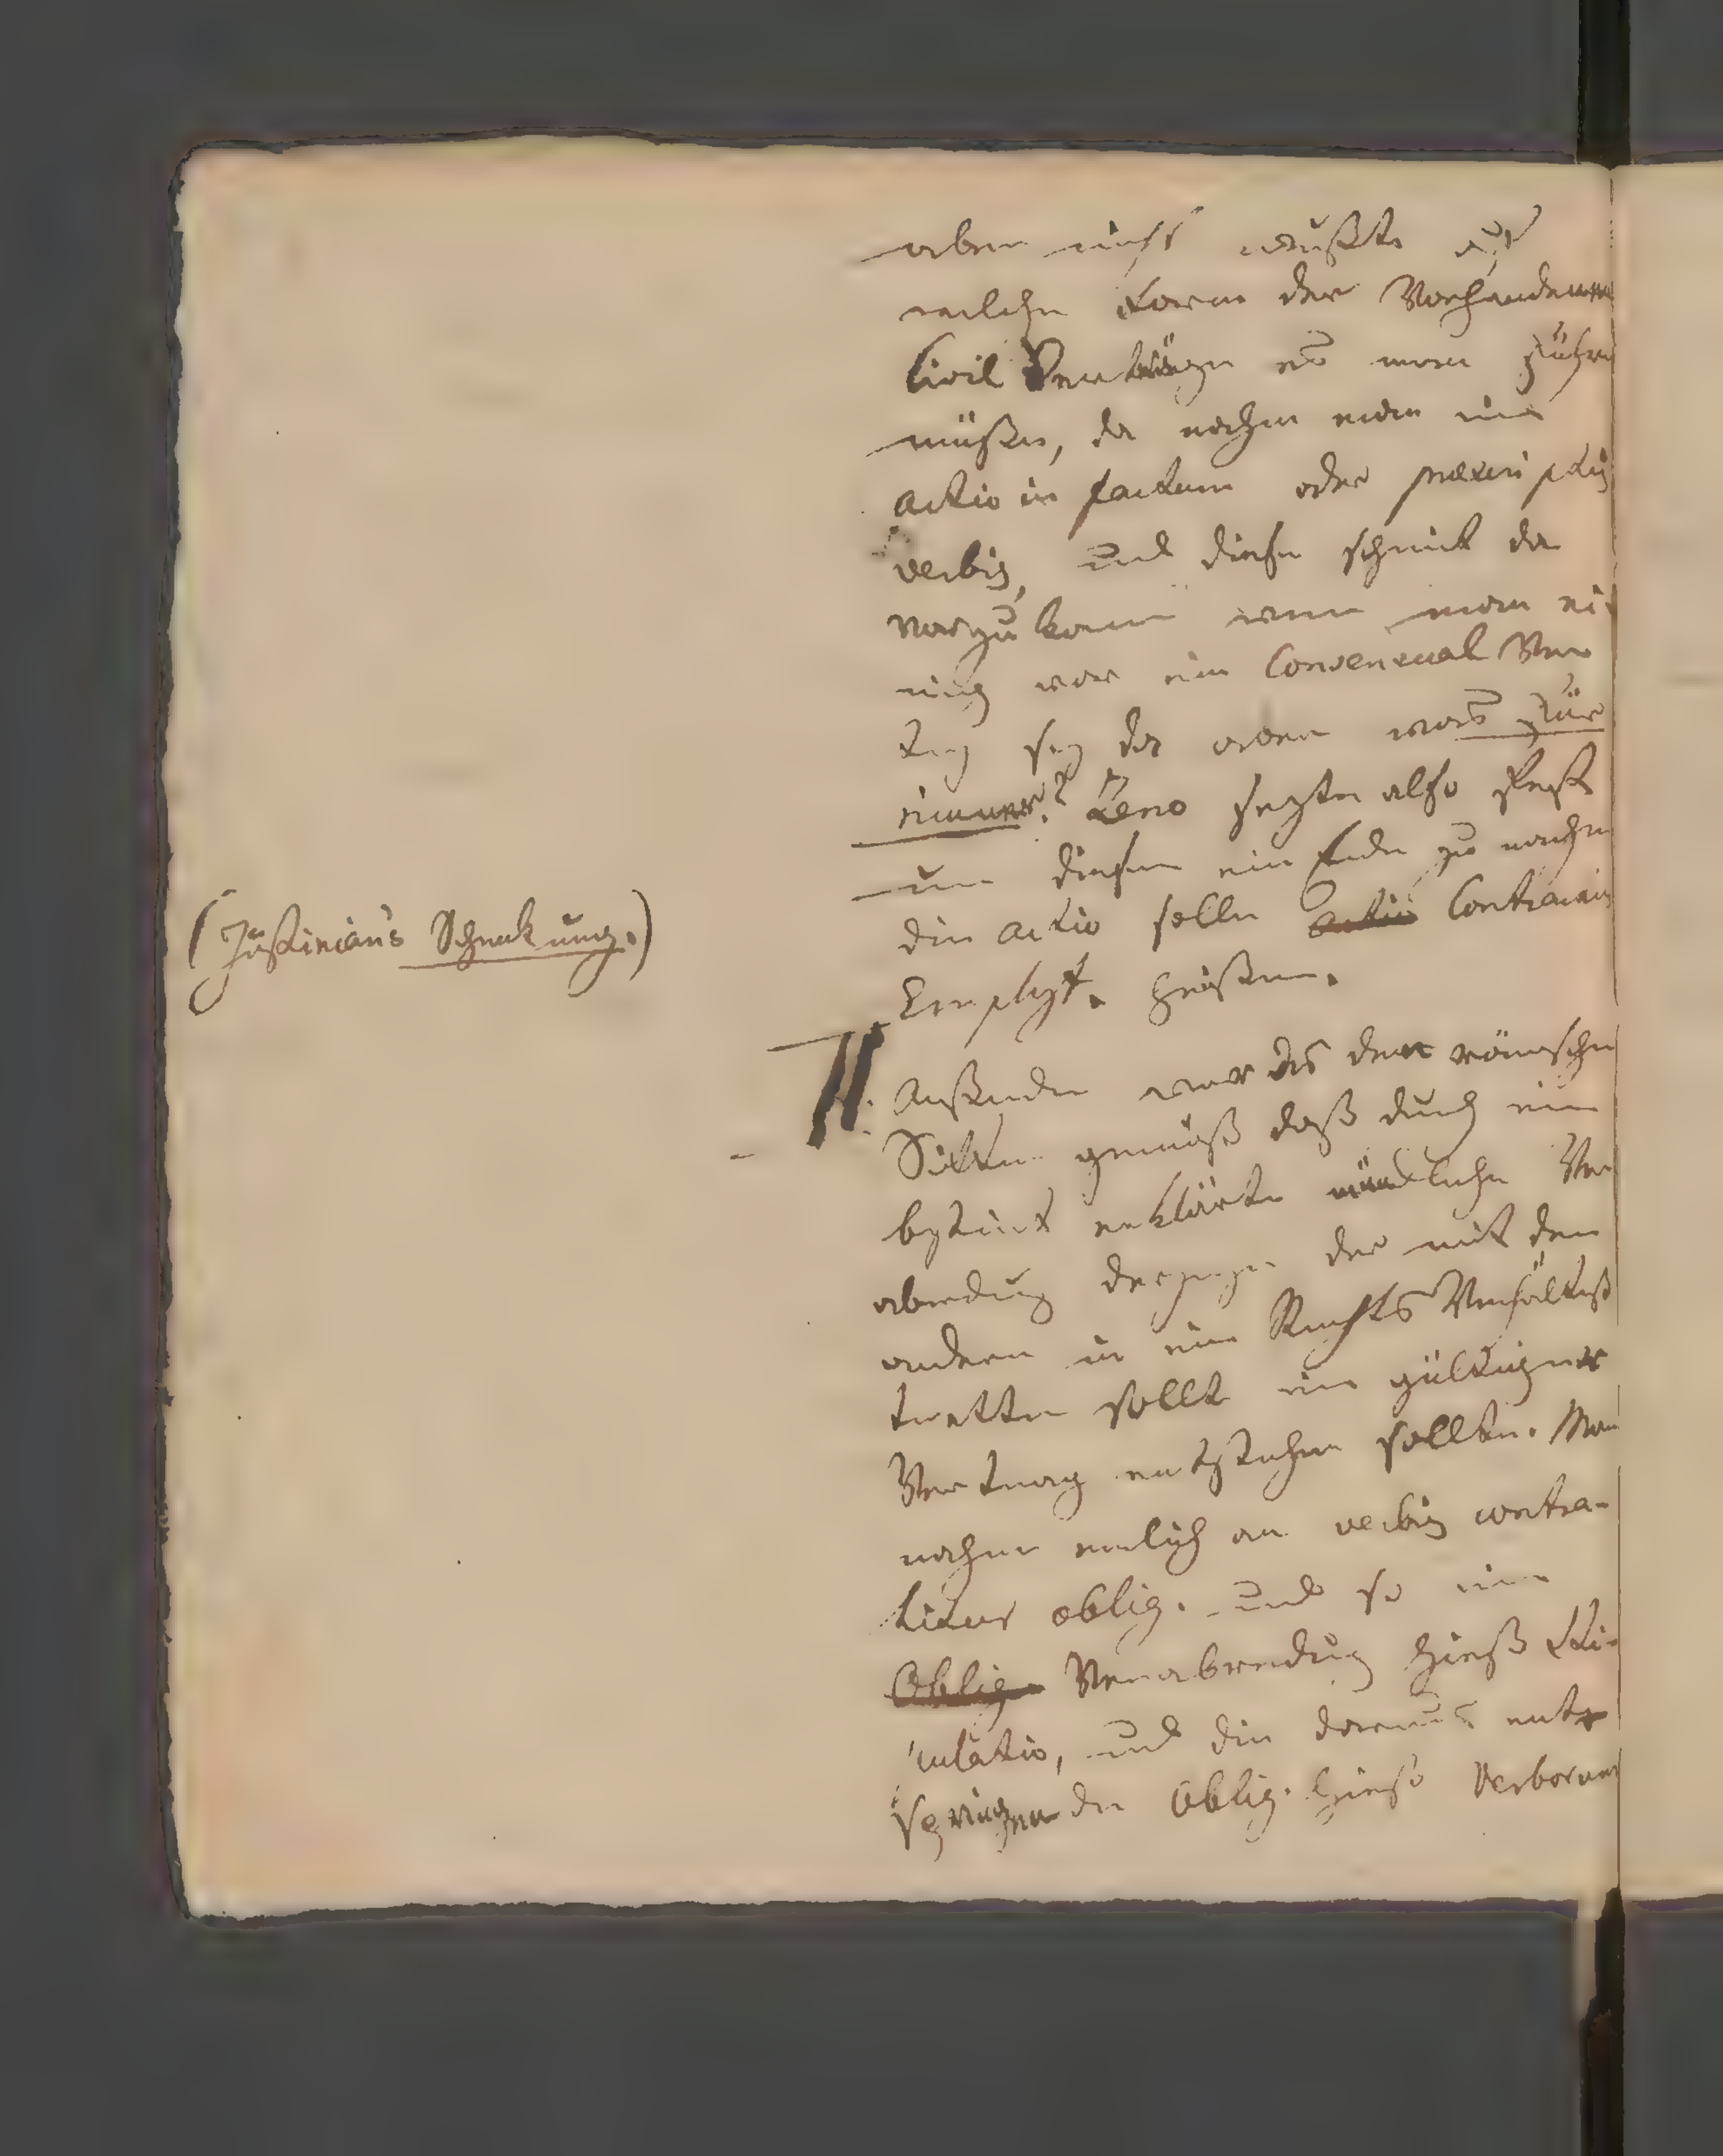 aber nicht wußte auf
welche Form der Vorhandenen
Civil Verträge es man führen
müßen, da nahm man ein
actio in factum oder præscriptis
verbis, und diese scheint da
vorzukommen wenn man ei-
nig war ein Consensual Ver
trag sey da aber was für
einer? Zeno sezte also fest
um diesem ein Ende zu machen
die actio solle actio Contractus
Emphyt. heißen.
(Justinians Schenkung.)
II. Außerdem war es den römischen
Sitten gemäß daß durch eine
bestimt erklärte mündliche Ver
abredung desjenigen der mit dem
andern in ein Rechts Verhältniß
tretten sollte ein gültiger
Vertrag entstehen sollte. Man
nahm nemlich an verbis contra-
hitur oblig. und so eine
Oblig. Verabredung hieß Sti-
pulatio, und die daraus ent
springende Oblig. hieß Verborum